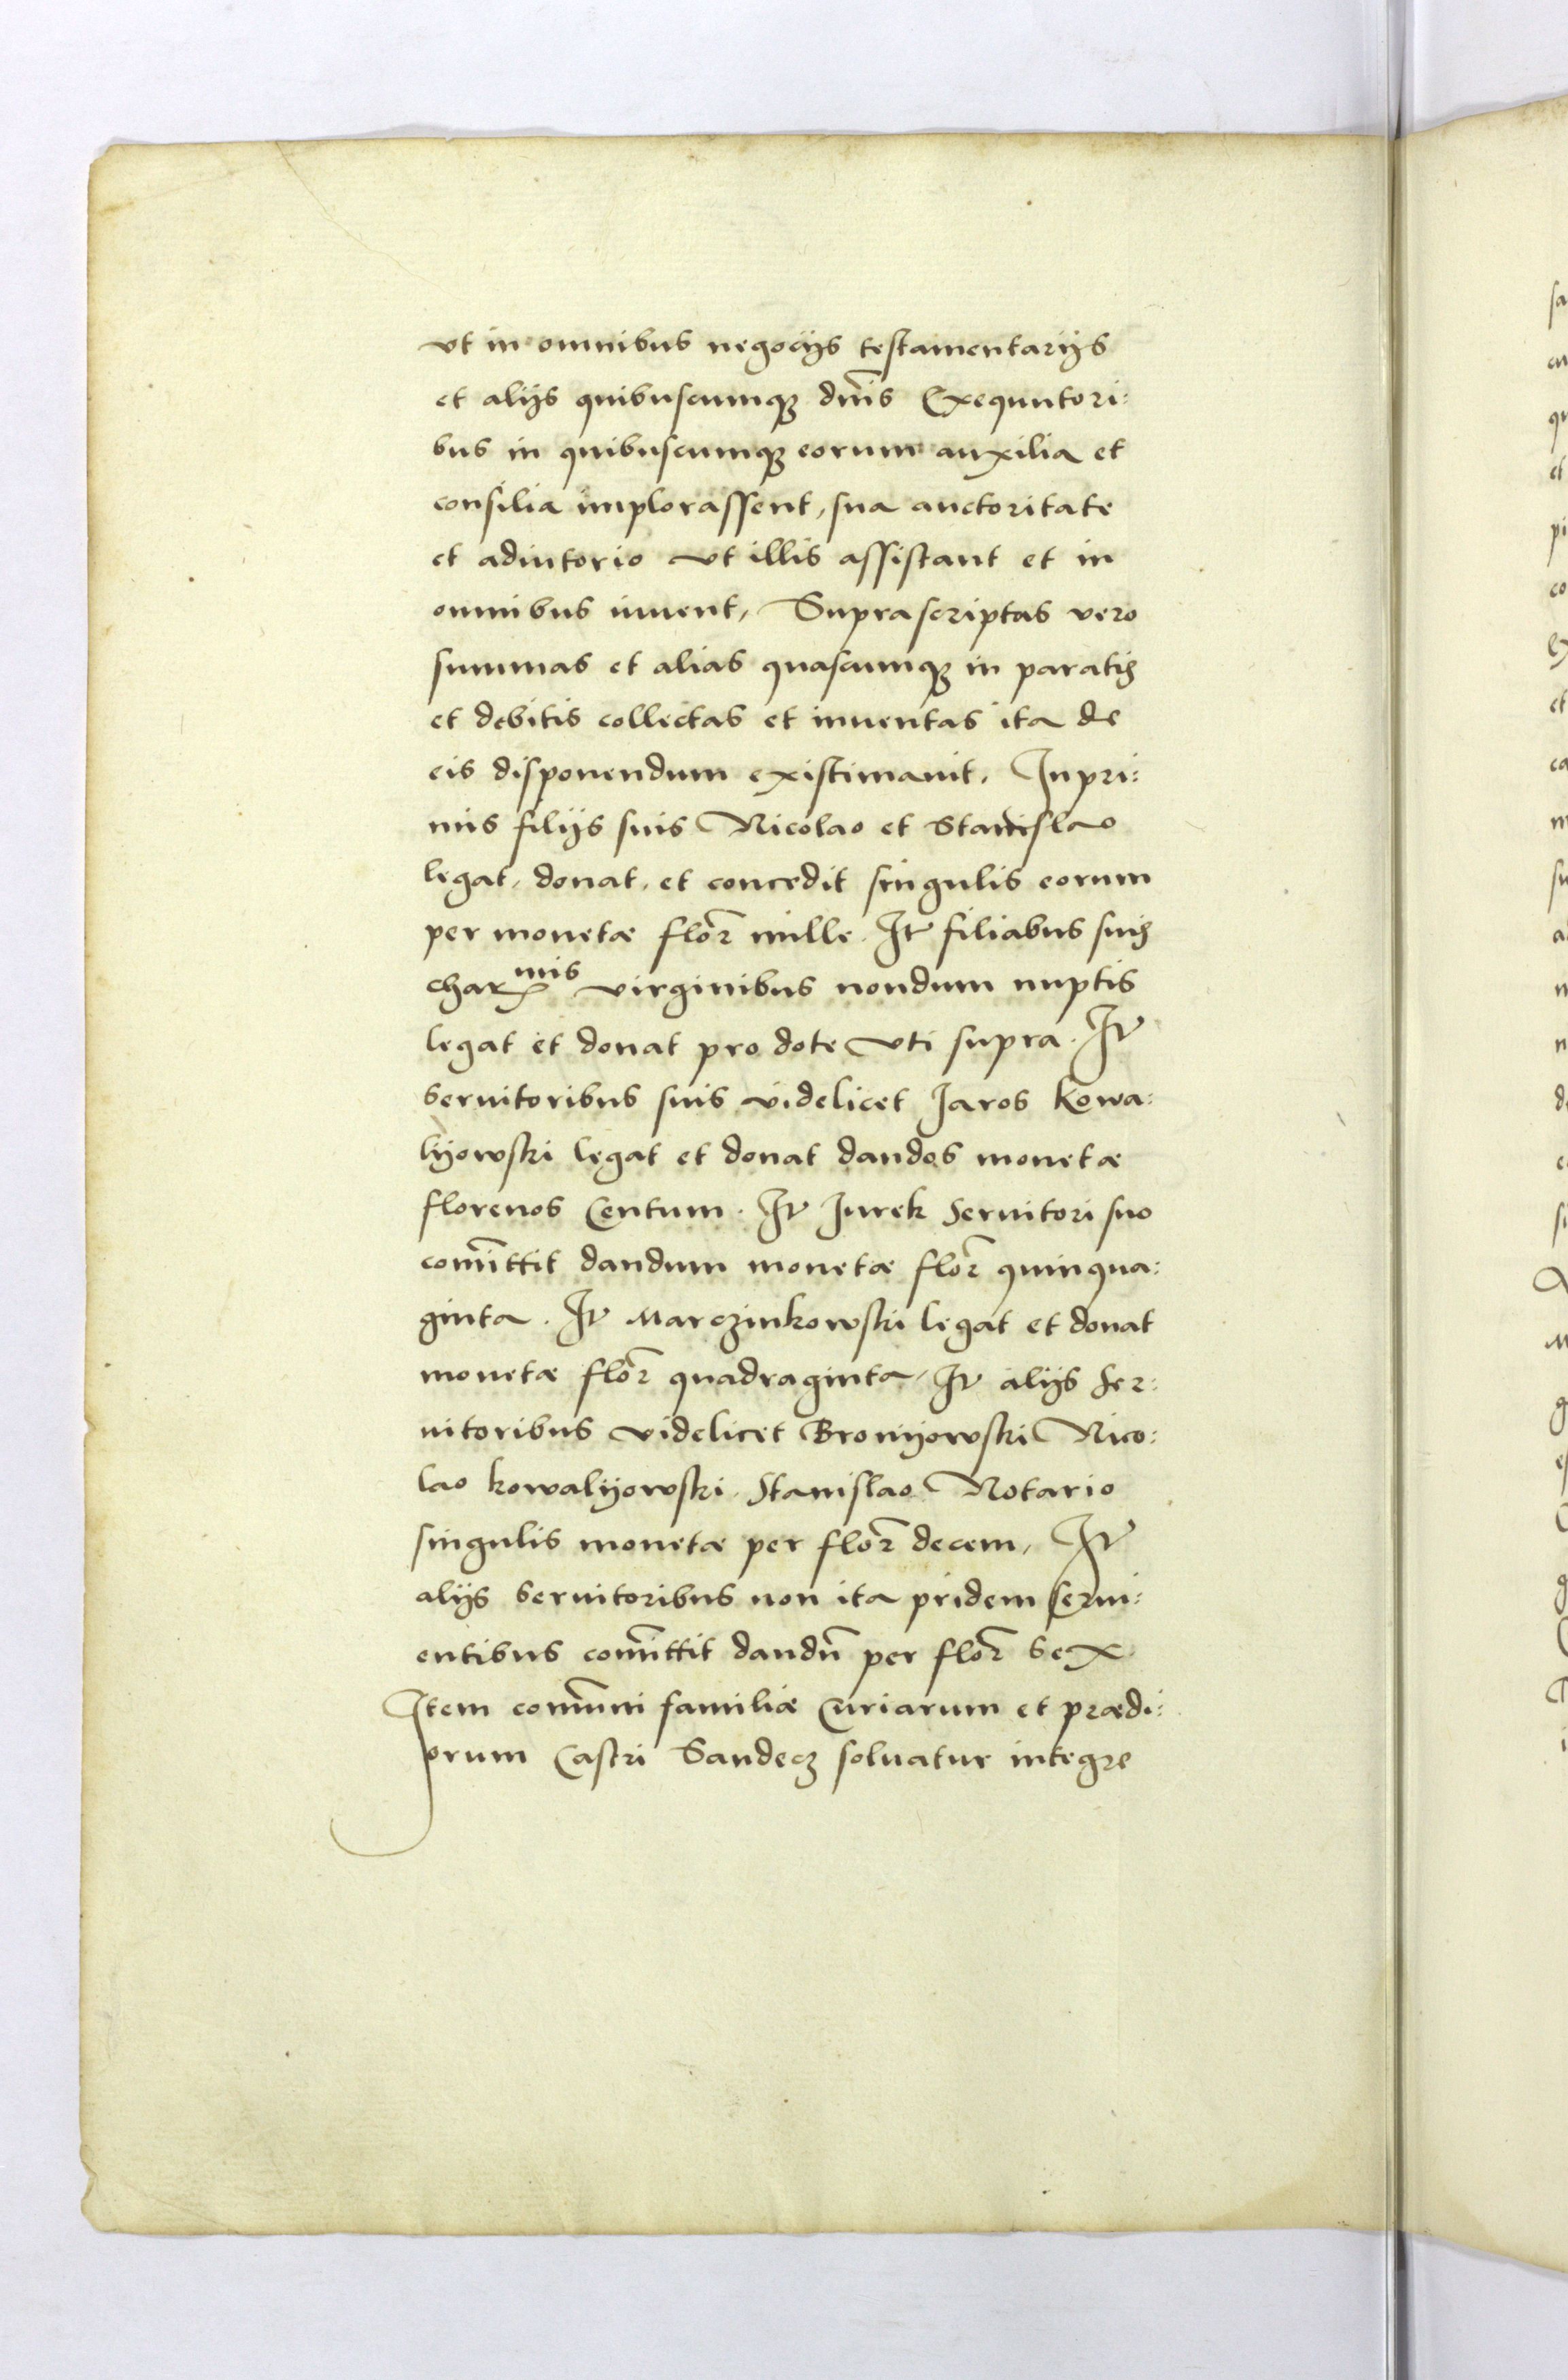 vt in omnibus negocijs testamentarijs
et alijs quibuscumqꝫ dn̄is Exequutori:
bus in quibuscumqꝫ eorum auxilia et
consilia implorassent, sua auctoritate
et adiutorio vt illis assistant et in
omnibus iuuent, Suprascriptas vero
summas et alias quascumqꝫ in paratis
et debitis collectas et inuentas ita de
eis disponendum existimauit. Inpri:
mis filijs suis Nicolao et Stanislao
legat, donat, et concedit singulis eorum
per monetæflor̄ mille. It filiabus suis
charmis virginibus nondum nuptis
legat et donat pro dote vti supra. It
seruitoribus suis videlicet Jaros Kowa:
lijowski legat et donat dandos monetæ
florenos Centum. It Jurek Seruitori suo
com̄ittit dandum monetæ flor̄ quinqua:
ginta. It Marczinkowski legat et donat
monetæ flor̄ quadraginta, It alijs Ser:
uitoribus videlicet Bronijowski Nico:
lao kowalijowski. Stanislao Notario
singulis monetæ per flor̄ decem, It
alijs seruitoribus non ita pridem serui:
entibus com̄ittit dandū per flor̄ sex.
Item com̄uni familiæ Curiarum et prædi:
orum Castri Sandecz soluatur integre